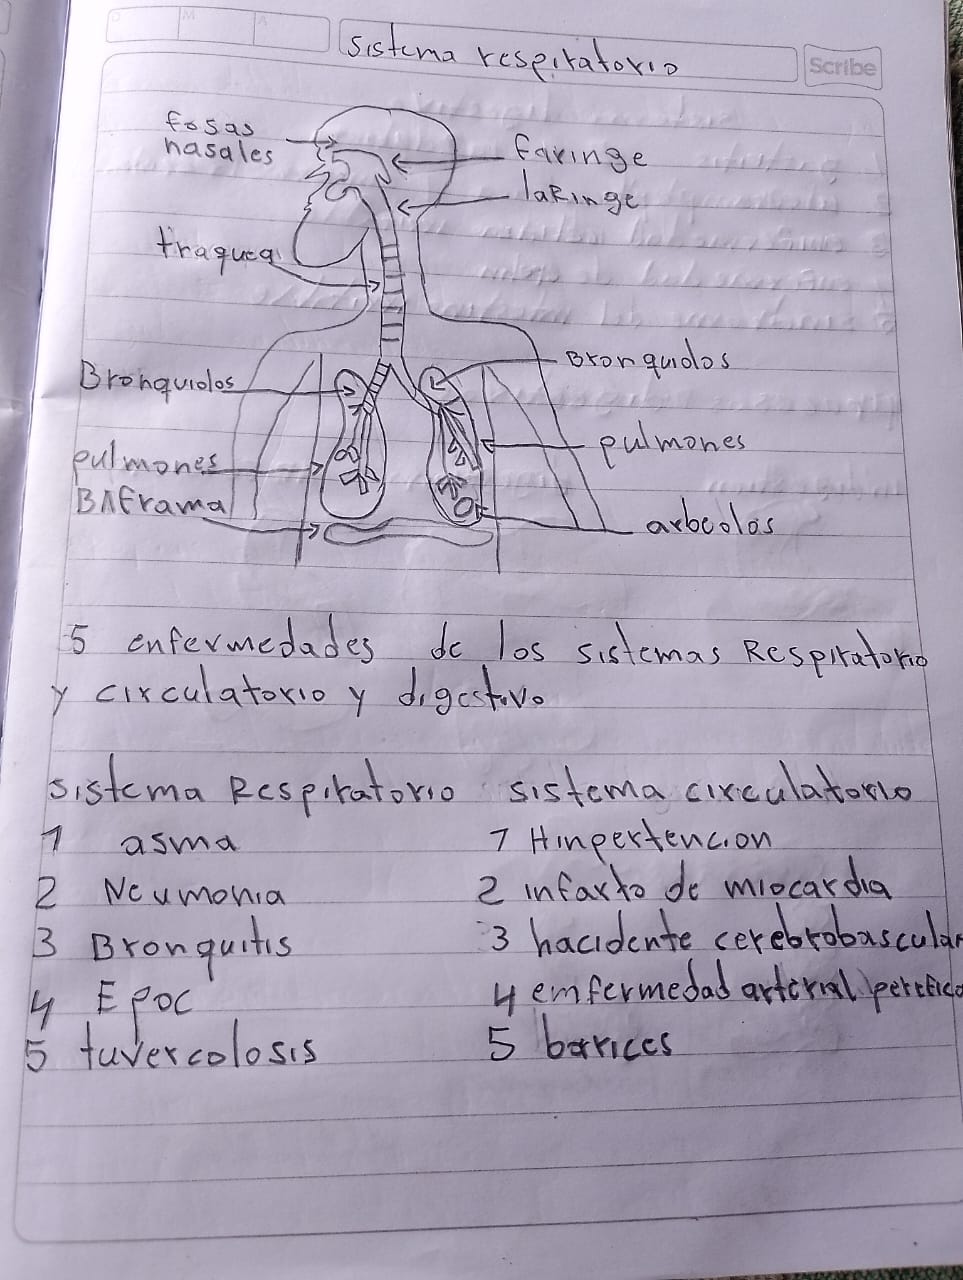 sistema respiratorio
Scribe
fosas
nasales
faringe
laringe
traquea
Bronquiolos
Bronquiolos
pulmones
pulmones
BAframa
arbeolos
5 enfermedades de los sistemas Respiratorio
y circulatorio y digestivo
sistema Respiratorio
1 asma
2 Neumonia
3 Bronquitis
4 EPOC
5 tuvercolosis
sistema circulatorio
1 Hinpertencion
2 infarto de miocardia
3 hacidente cerebrobascular
4 emfermedad arterial
5 barices